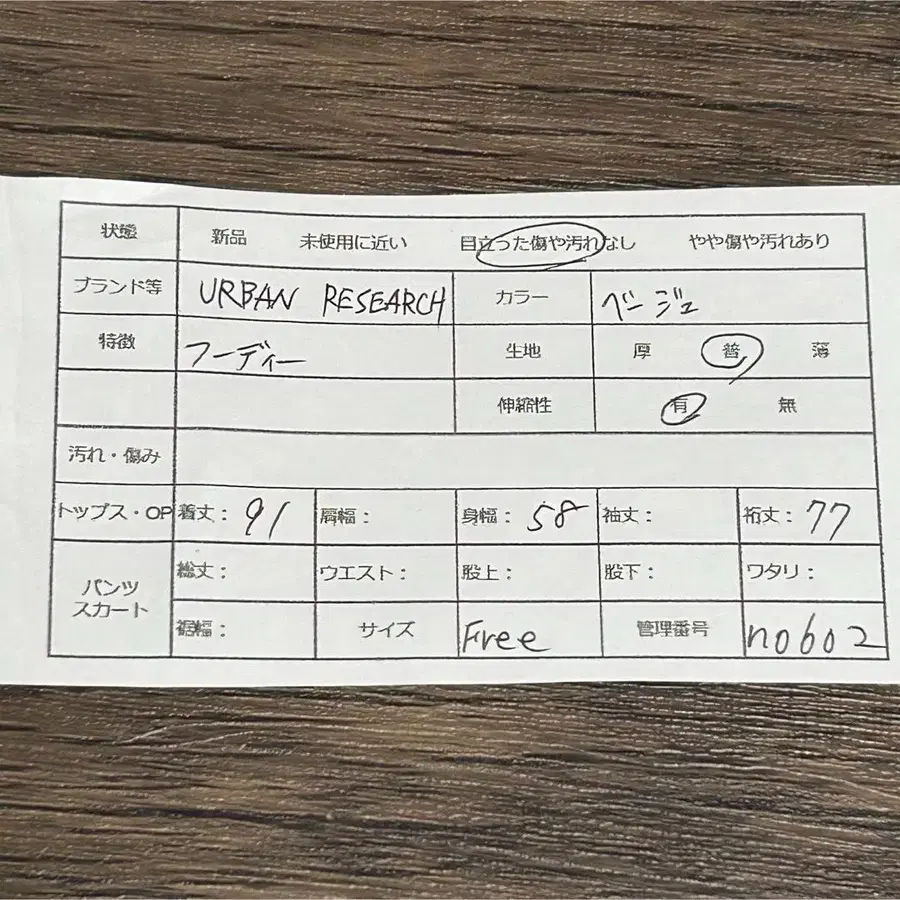 状態 新品 未使用に近い 目立った傷や汚れなし やや傷や汚れあり
ブランド等 URBAN RESEARCH カラー ベージュ
特徴 フーディー 生地 厚 普 薄
伸縮性 有 無
汚れ・傷み
トップス・OP 着丈: 91 肩幅: 身幅: 58 袖丈: 裄丈: 77
パンツ スカート 総丈: ウエスト: 股上: 股下: ワタリ:
裾幅: サイズ Free 管理番号 n0602